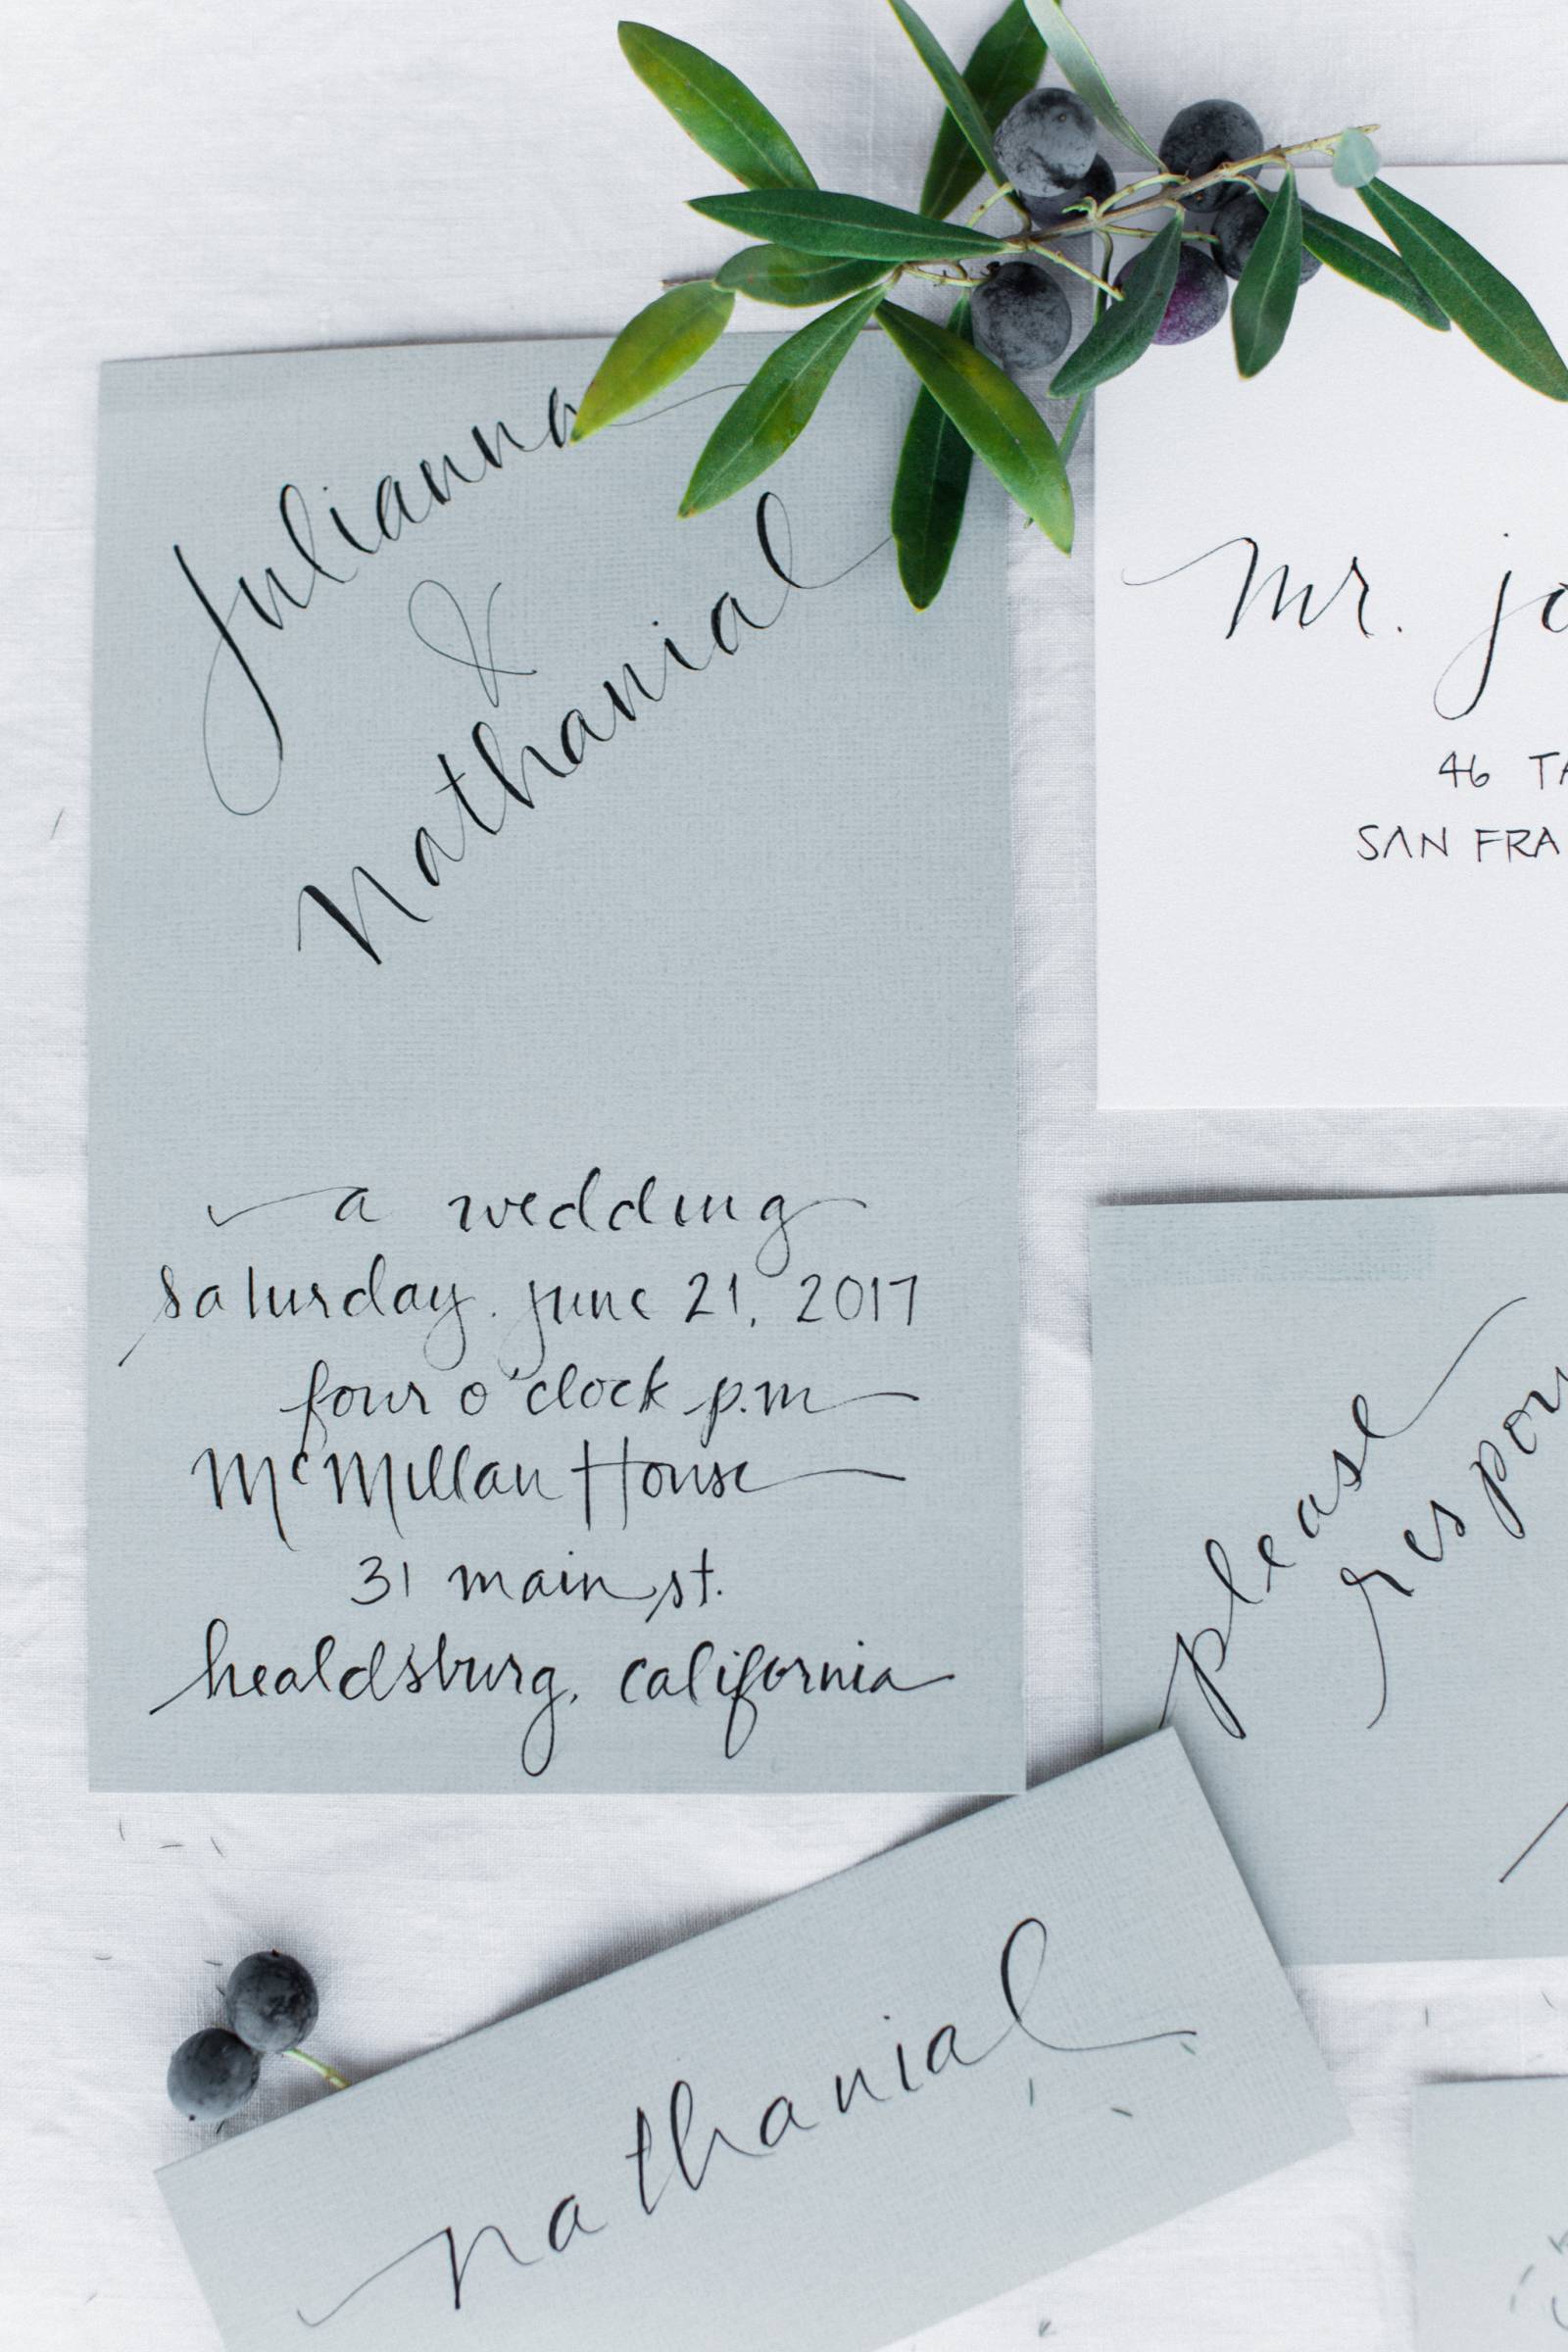 Julianna
&
Nathanial
a wedding
saturday. june 21, 2017
four o'clock p.m
McMillan House
31 main st.
healdsburg, california
mr. jo
46 TA
SAN FRA
please
respon
nathanial